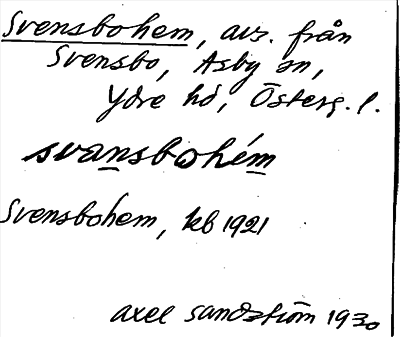 Svensbohem, avs. från
Svensbo, Asby sn,
Ydre hd, Österg. l.
svansbohém
Svensbohem, kb 1921
axel sandström 1930